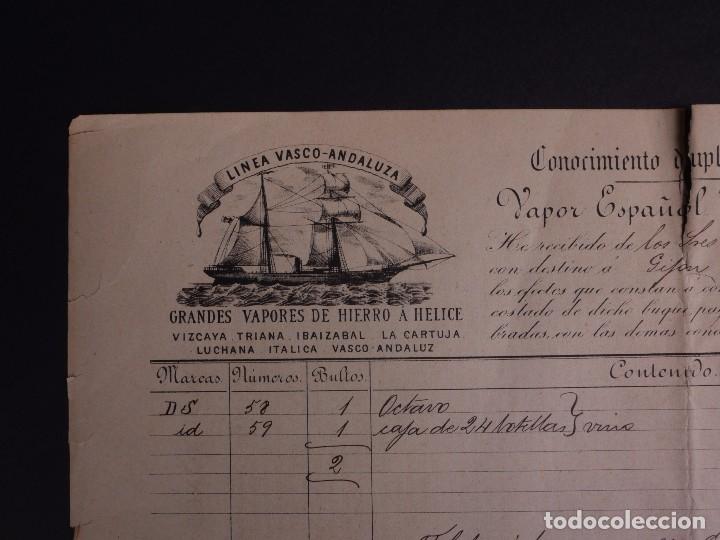 LINEA VASCO-ANDALUZA
GRANDES VAPORES DE HIERRO Á HELICE
VIZCAYA. TRIANA. IBAIZABAL. LA CARTUJA.
LUCHANA ITALICA VASCO-ANDALUZ
Conocimiento dupl
Vapor Español
He recibido de los Sres
con destino á Gijon
los efectos que constan á co
costado de dicho buque, pag
bradas, con las demas cond
Marcas. Números. Bultos. Contenido.
DS 58 1 Octavo
id 59 1 caja de 24 botellas } vino
2
todocoleccion.net